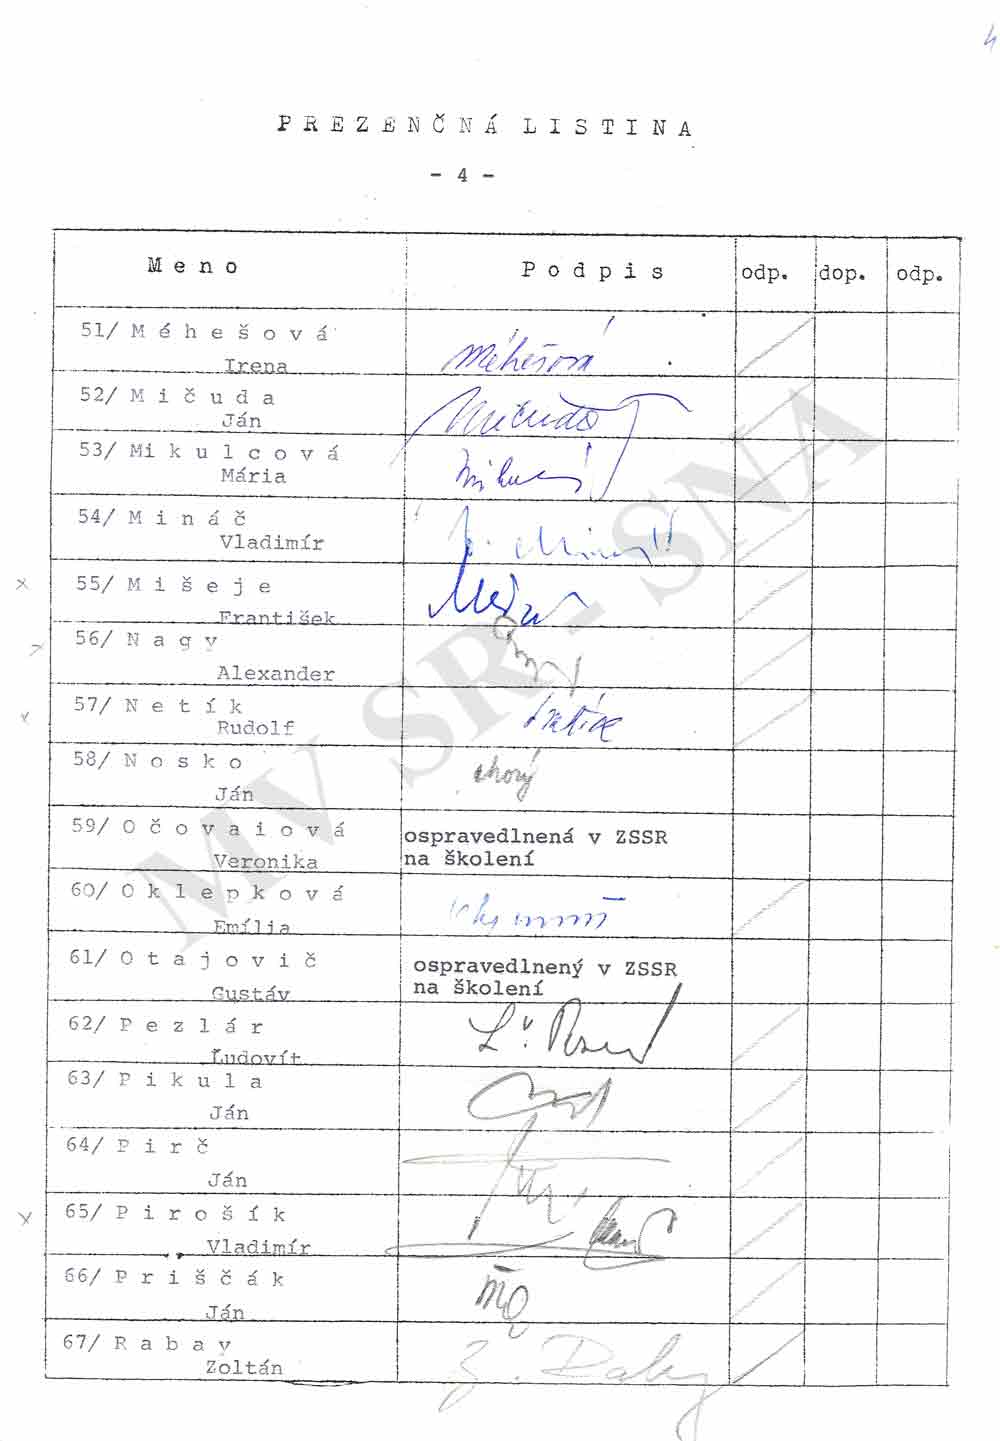 4
P R E Z E N Č N Á L I S T I N A
- 4 -
M e n o P o d p i s odp. dop. odp.
51/ M é h e š o v á
Irena
Méhešová
52/ M i č u d a
Ján
Mičuda
53/ M i k u l c o v á
Mária
54/ M i n á č
Vladimír
55/ M i š e j e
František
56/ N a g y
Alexander
57/ N e t í k
Rudolf
58/ N o s k o
Ján
chorý
59/ O č o v a i o v á
Veronika
ospravedlnená v ZSSR
na školení
60/ O k l e p k o v á
Emília
61/ O t a j o v i č
Gustáv
ospravedlnený v ZSSR
na školení
62/ P e z l á r
Ľudovít
63/ P i k u l a
Ján
64/ P i r č
Ján
65/ P i r o š í k
Vladimír
66/ P r i š č á k
Ján
67/ R a b a y
Zoltán
MV SR - SNA